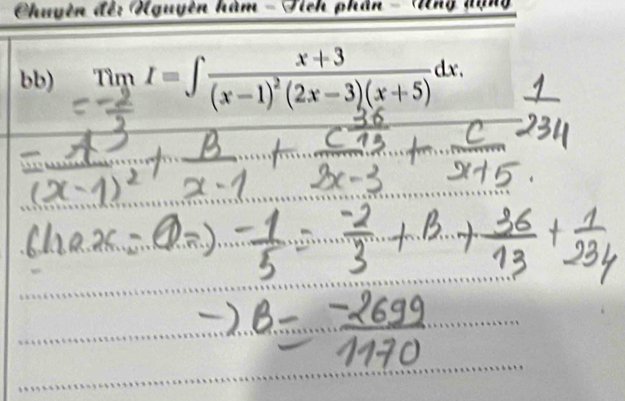 Chuyên đề: Nguyên hàm - Tích phân - Ứng dụng
bb) Tìm I = ∫ (x+3)/((x-1)²(2x-3)(x+5)) dx.
= -2/3 36/13 1/234
= A/(x-1)² + B/(x-1) + C/(2x-3) + C/(x+5) .
Cho x = 0 => -1/5 = -2/3 + B + 36/13 + 1/234
-> B = -2699/1170